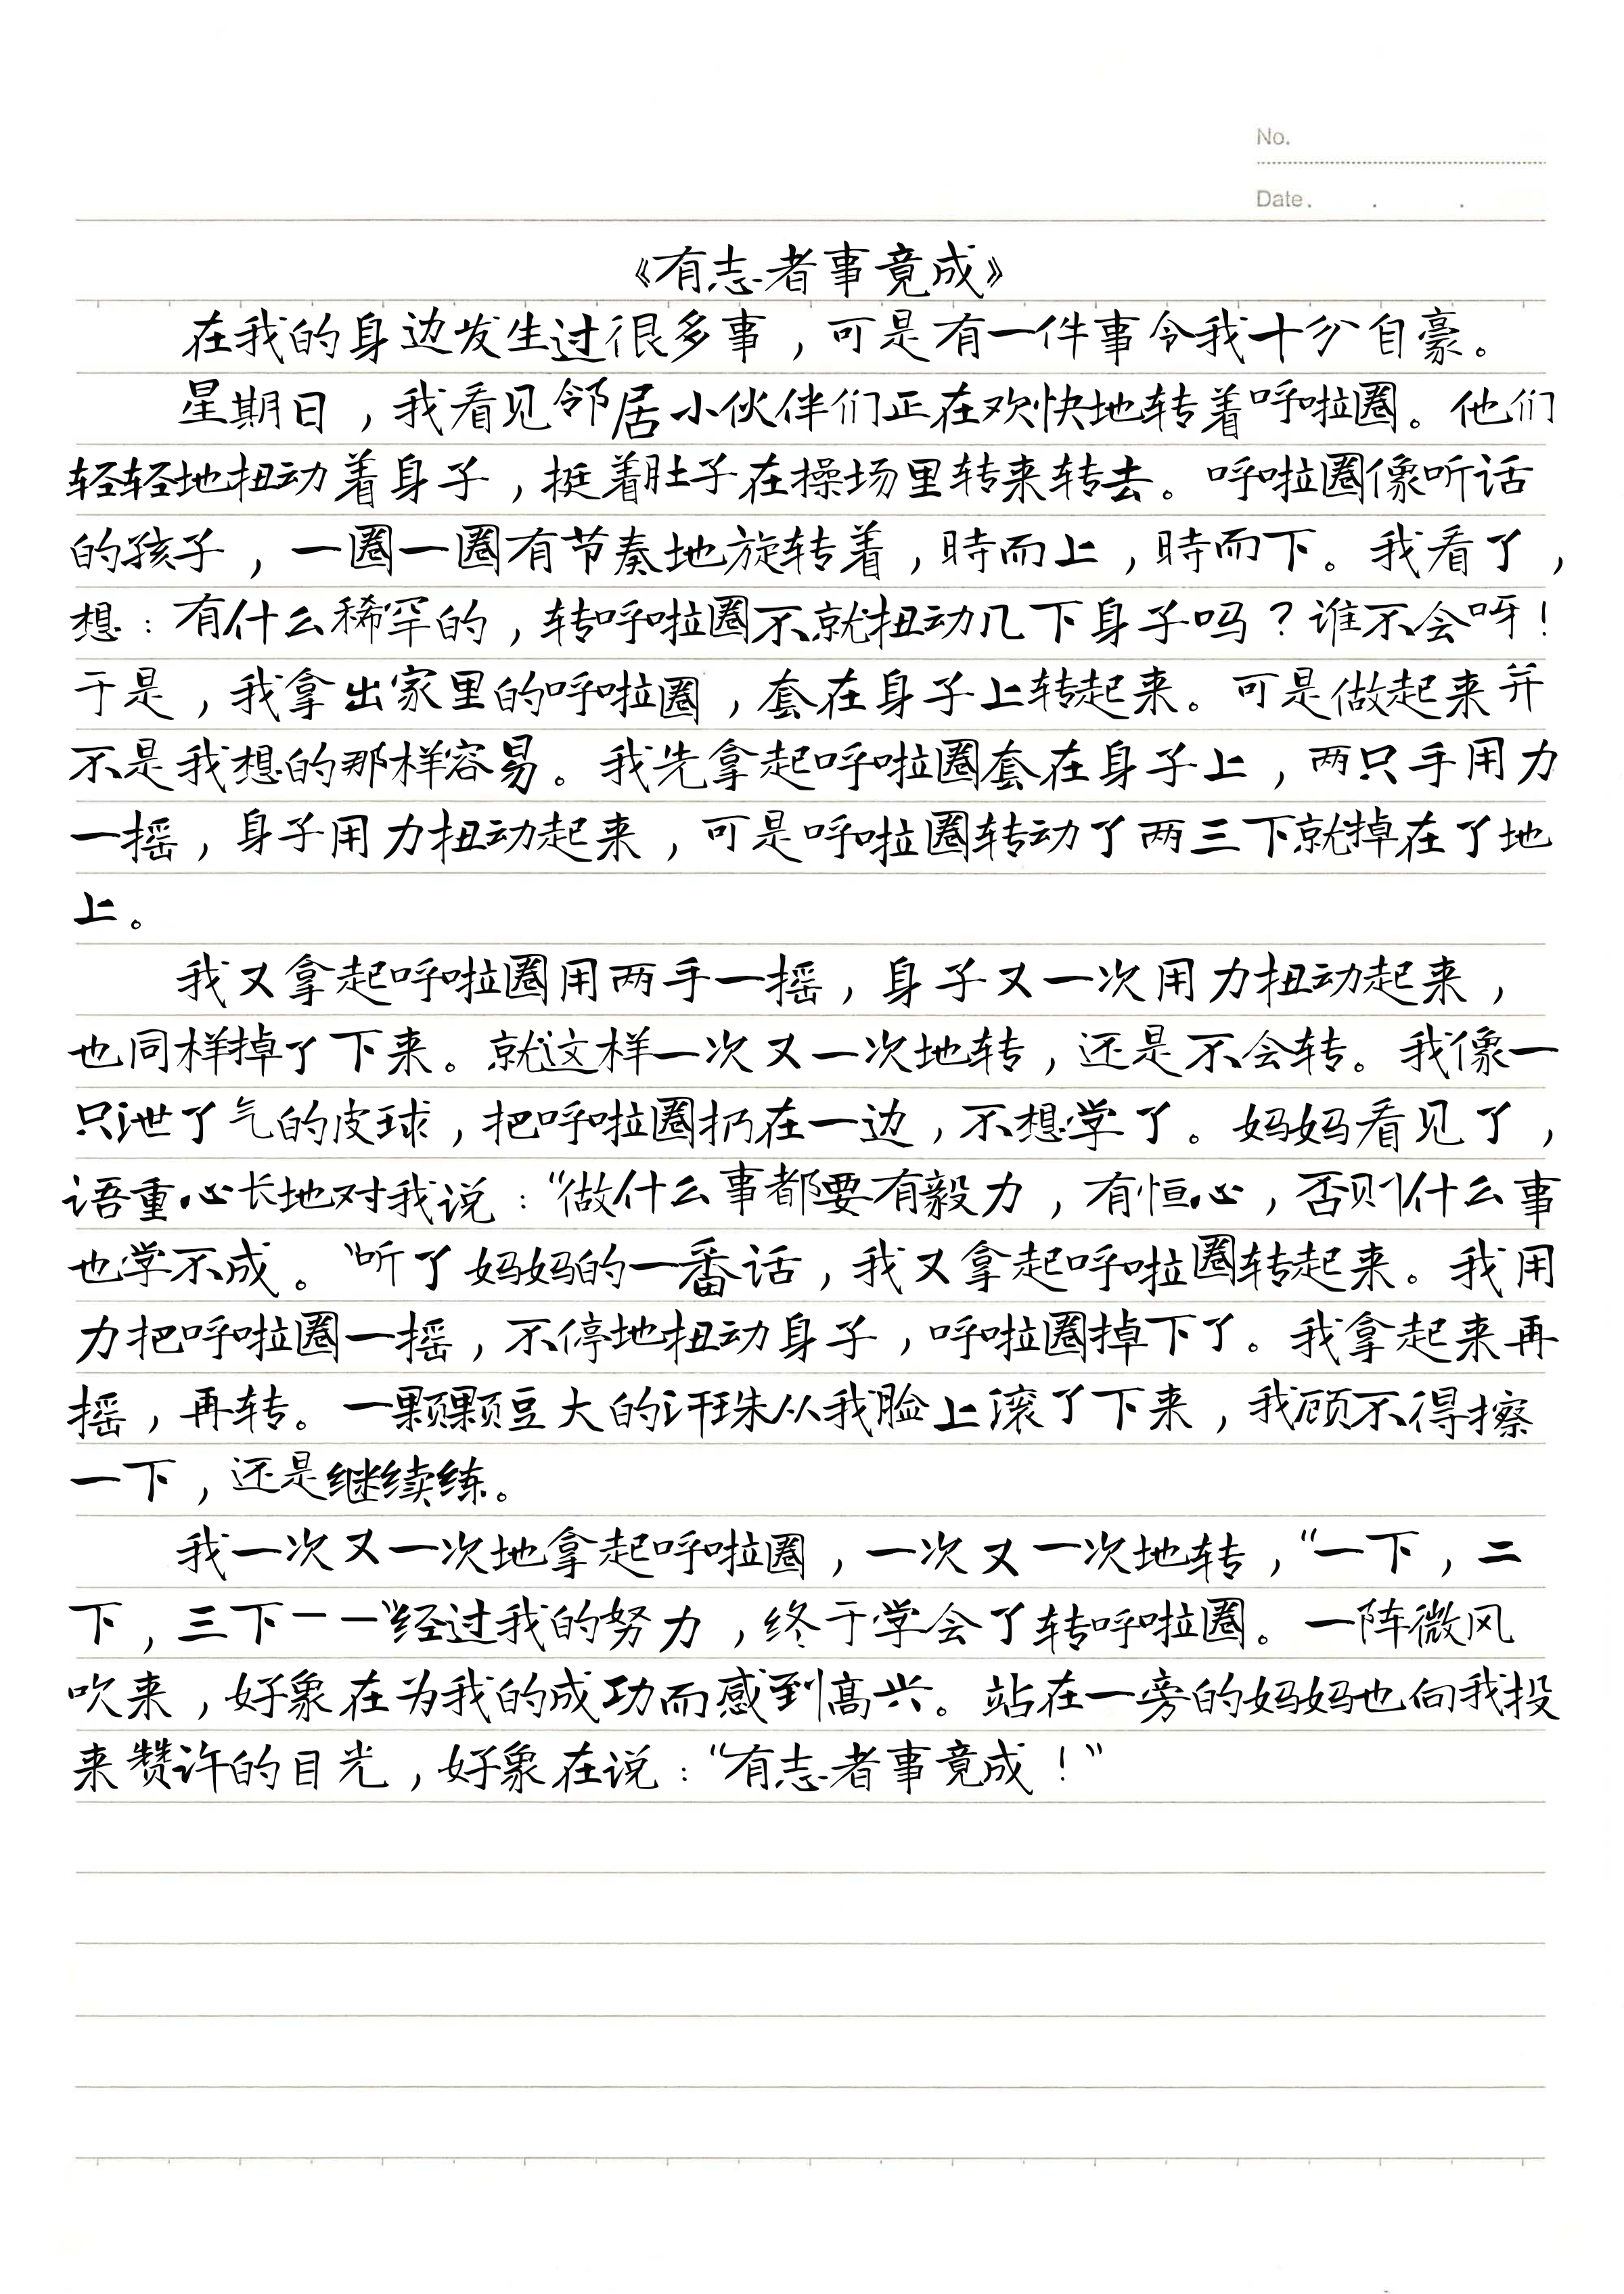 No.
Date.
《有志者事竟成》
在我的身边发生过很多事，可是有一件事令我十分自豪。
星期日，我看见邻居小伙伴们正在欢快地转着呼啦圈。他们
轻轻地扭动着身子，挺着肚子在操场里转来转去。呼啦圈像听话
的孩子，一圈一圈有节奏地旋转着，時而上，時而下。我看了，
想：有什么稀罕的，转呼啦圈不就扭动几下身子吗？谁不会呀！
于是，我拿出家里的呼啦圈，套在身子上转起来。可是做起来并
不是我想的那样容易。我先拿起呼啦圈套在身子上，两只手用力
一摇，身子用力扭动起来，可是呼啦圈转动了两三下就掉在了地
上。
我又拿起呼啦圈用两手一摇，身子又一次用力扭动起来，
也同样掉了下来。就这样一次又一次地转，还是不会转。我像一
只泄了气的皮球，把呼啦圈扔在一边，不想学了。妈妈看见了，
语重心长地对我说：“做什么事都要有毅力，有恒心，否则什么事
也学不成。”听了妈妈的一番话，我又拿起呼啦圈转起来。我用
力把呼啦圈一摇，不停地扭动身子，呼啦圈掉下了。我拿起来再
摇，再转。一颗颗豆大的汗珠从我脸上滚了下来，我顾不得擦
一下，还是继续练。
我一次又一次地拿起呼啦圈，一次又一次地转，“一下，二
下，三下——”经过我的努力，终于学会了转呼啦圈。一阵微风
吹来，好象在为我的成功而感到高兴。站在一旁的妈妈也向我投
来赞许的目光，好象在说：“有志者事竟成！”